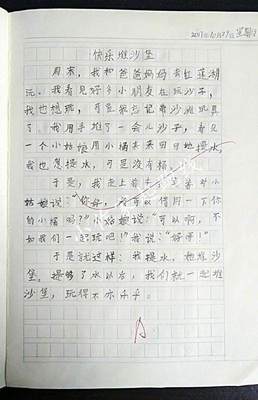 快乐堆沙堡
周末，我和爸爸妈妈去红莲湖
玩。我看见好多小朋友在玩沙子，
我也想玩，可是我忘记带沙滩玩具
了。我用手堆了一会儿沙子，看见
一个小姑娘用小桶来来回回地提水，
我也想提水，可是没有桶。
于是，我走上前去，笑着对小
姑娘说：“你好，我可以借用一下你
的小桶吗？”小姑娘说：“可以啊，不
如我们一起玩吧！”我说：“好呀！”
于是就这样：我提水，她堆沙
堡。提够了水以后，我们就一起堆
沙堡，玩得不亦乐乎。